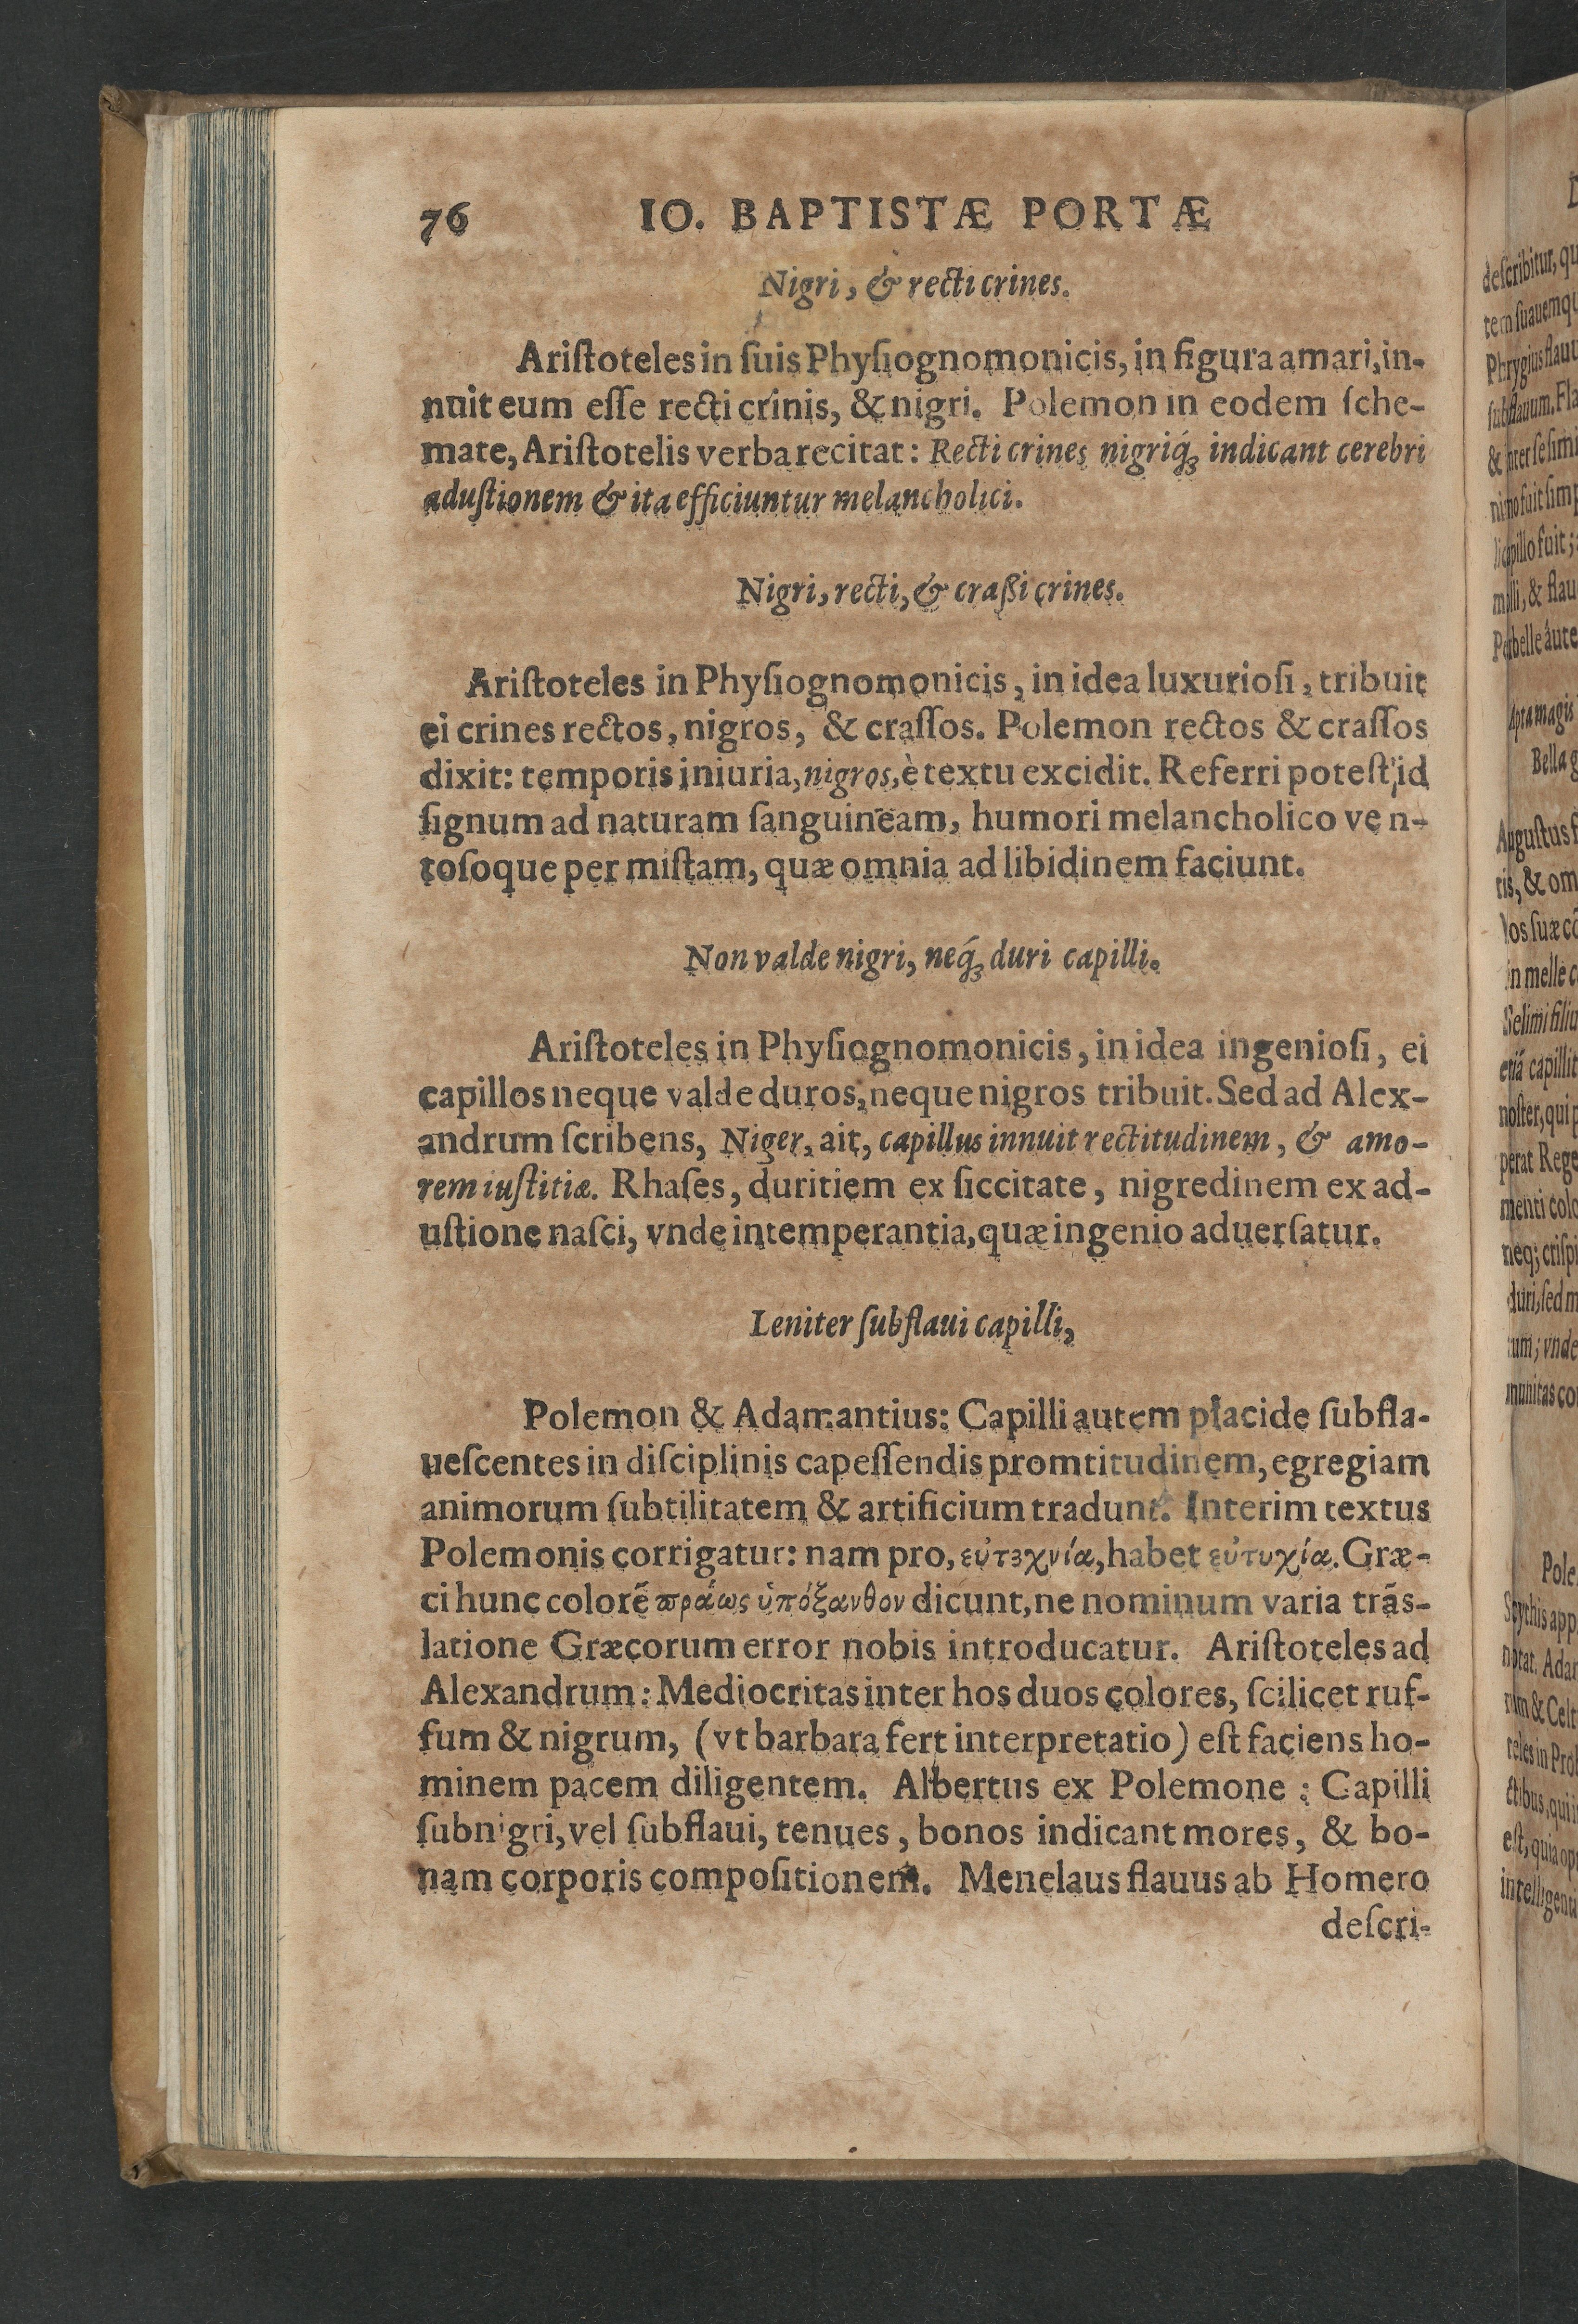 76 IO. BAPTISTÆ PORTÆ
Nigri, & recti crines.
Ariſtoteles in ſuis Phyſiognomonicis, in figura amari, in-
nuit eum eſſe recti crinis, & nigri. Polemon in eodem ſche-
mate, Ariſtotelis verba recitat: Recti crines nigriq́ꝫ indicant cerebri
aduſtionem & ita efficiuntur melancholici.
Nigri, recti, & craßi crines.
Ariſtoteles in Phyſiognomonicis, in idea luxurioſi, tribuit
ei crines rectos, nigros, & craſſos. Polemon rectos & craſſos
dixit: temporis iniuria, nigros, è textu excidit. Referri poteſt id
ſignum ad naturam ſanguineam, humori melancholico ven-
toſoque per miſtam, quæ omnia ad libidinem faciunt.
Non valde nigri, neq́ꝫ duri capilli.
Ariſtoteles in Phyſiognomonicis, in idea ingenioſi, ei
capillos neque valde duros, neque nigros tribuit. Sed ad Alex-
andrum ſcribens, Niger, ait, capillus innuit rectitudinem, & amo-
rem iuſtitiæ. Rhaſes, duritiem ex ſiccitate, nigredinem ex ad-
uſtione naſci, vnde intemperantia, quæ ingenio aduerſatur.
Leniter ſubflaui capilli,
Polemon & Adamantius: Capilli autem placide ſubfla-
ueſcentes in diſciplinis capeſſendis promtitudinem, egregiam
animorum ſubtilitatem & artificium tradunt. Interim textus
Polemonis corrigatur: nam pro, εὐτεχνία, habet εὐτυχία. Græ-
ci hunc colorẽ πράως ὑπόξανθον dicunt, ne nominum varia trãs-
latione Græcorum error nobis introducatur. Ariſtoteles ad
Alexandrum: Mediocritas inter hos duos colores, ſcilicet ruf-
fum & nigrum, (vt barbara fert interpretatio) eſt faciens ho-
minem pacem diligentem. Albertus ex Polemone: Capilli
ſubnigri, vel ſubflaui, tenues, bonos indicant mores, & bo-
nam corporis compoſitionem. Menelaus flauus ab Homero
deſcri-